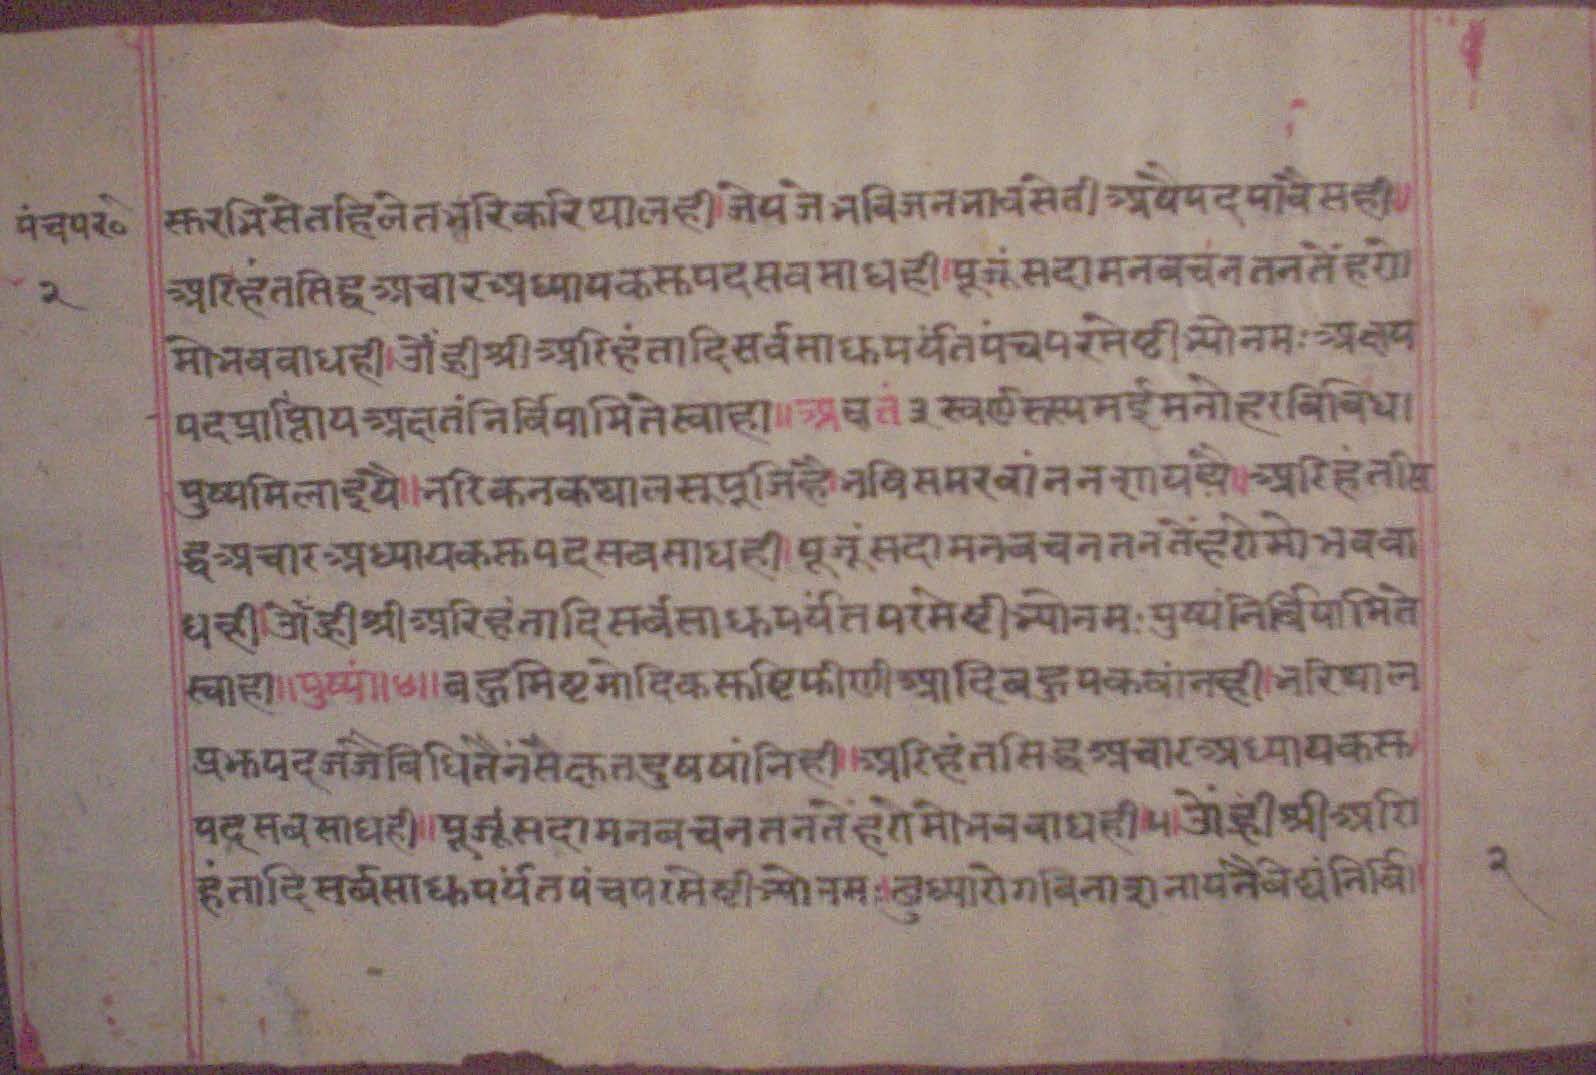 पंचपर॰
२
क्तरमिसेतहिजेतभरिकरिथालही।जेयजेभविजनभावसेती अषैपदपावैसही॥
अरिहंतसिद्धअचारअध्यायकरूपदसवसाधही।पूजूंसदामनबचंनतनतेंहरो।
मोभववाधही।ॐह्रीश्रीअरिहंतादिसर्वसाधुपर्यंतपंचपरमेष्टीभ्योनमःअक्षय
पदप्राप्तिायअक्षतंनिर्विपामितेस्वाहा॥अक्षतं३स्वर्ण मईमनोहरबिबिध।
पुष्पमिलाइयै॥भरिकनकथालसूपूजिहै अरिहंतसि
द्धअचारअध्यायकरूपदसवसाधही।पूजूंसदामनबचनतनतेंहरोमोभववा
धही।ॐह्रीश्रीअरिहंतादिसर्बसाधुपर्यंतपरमेष्टीभ्योनमःपुष्पंनिर्विपामिते
स्वाहा॥पुष्पं॥४॥बहुमिष्टमोदिक आदिबहुपकवांनही।भरिथाल
अरिहंतसिद्धअचारअध्यायकरू
पदसबसाधही॥पूजूंसदामनबचनतनतेंहरोमोभवबाधही।५।ॐह्रीश्रीअरि
हंतादिसर्बसाधुपर्यंतपंचपरमेष्टीभ्योनमः।क्षुध्यारोगबिनाशनायंनैबेद्यंनिर्बि।
२